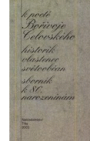 k poctě
Bořivoje
Čelovského
historik
vlastenec
světoobčan
sborník
k 80.
narozeninám